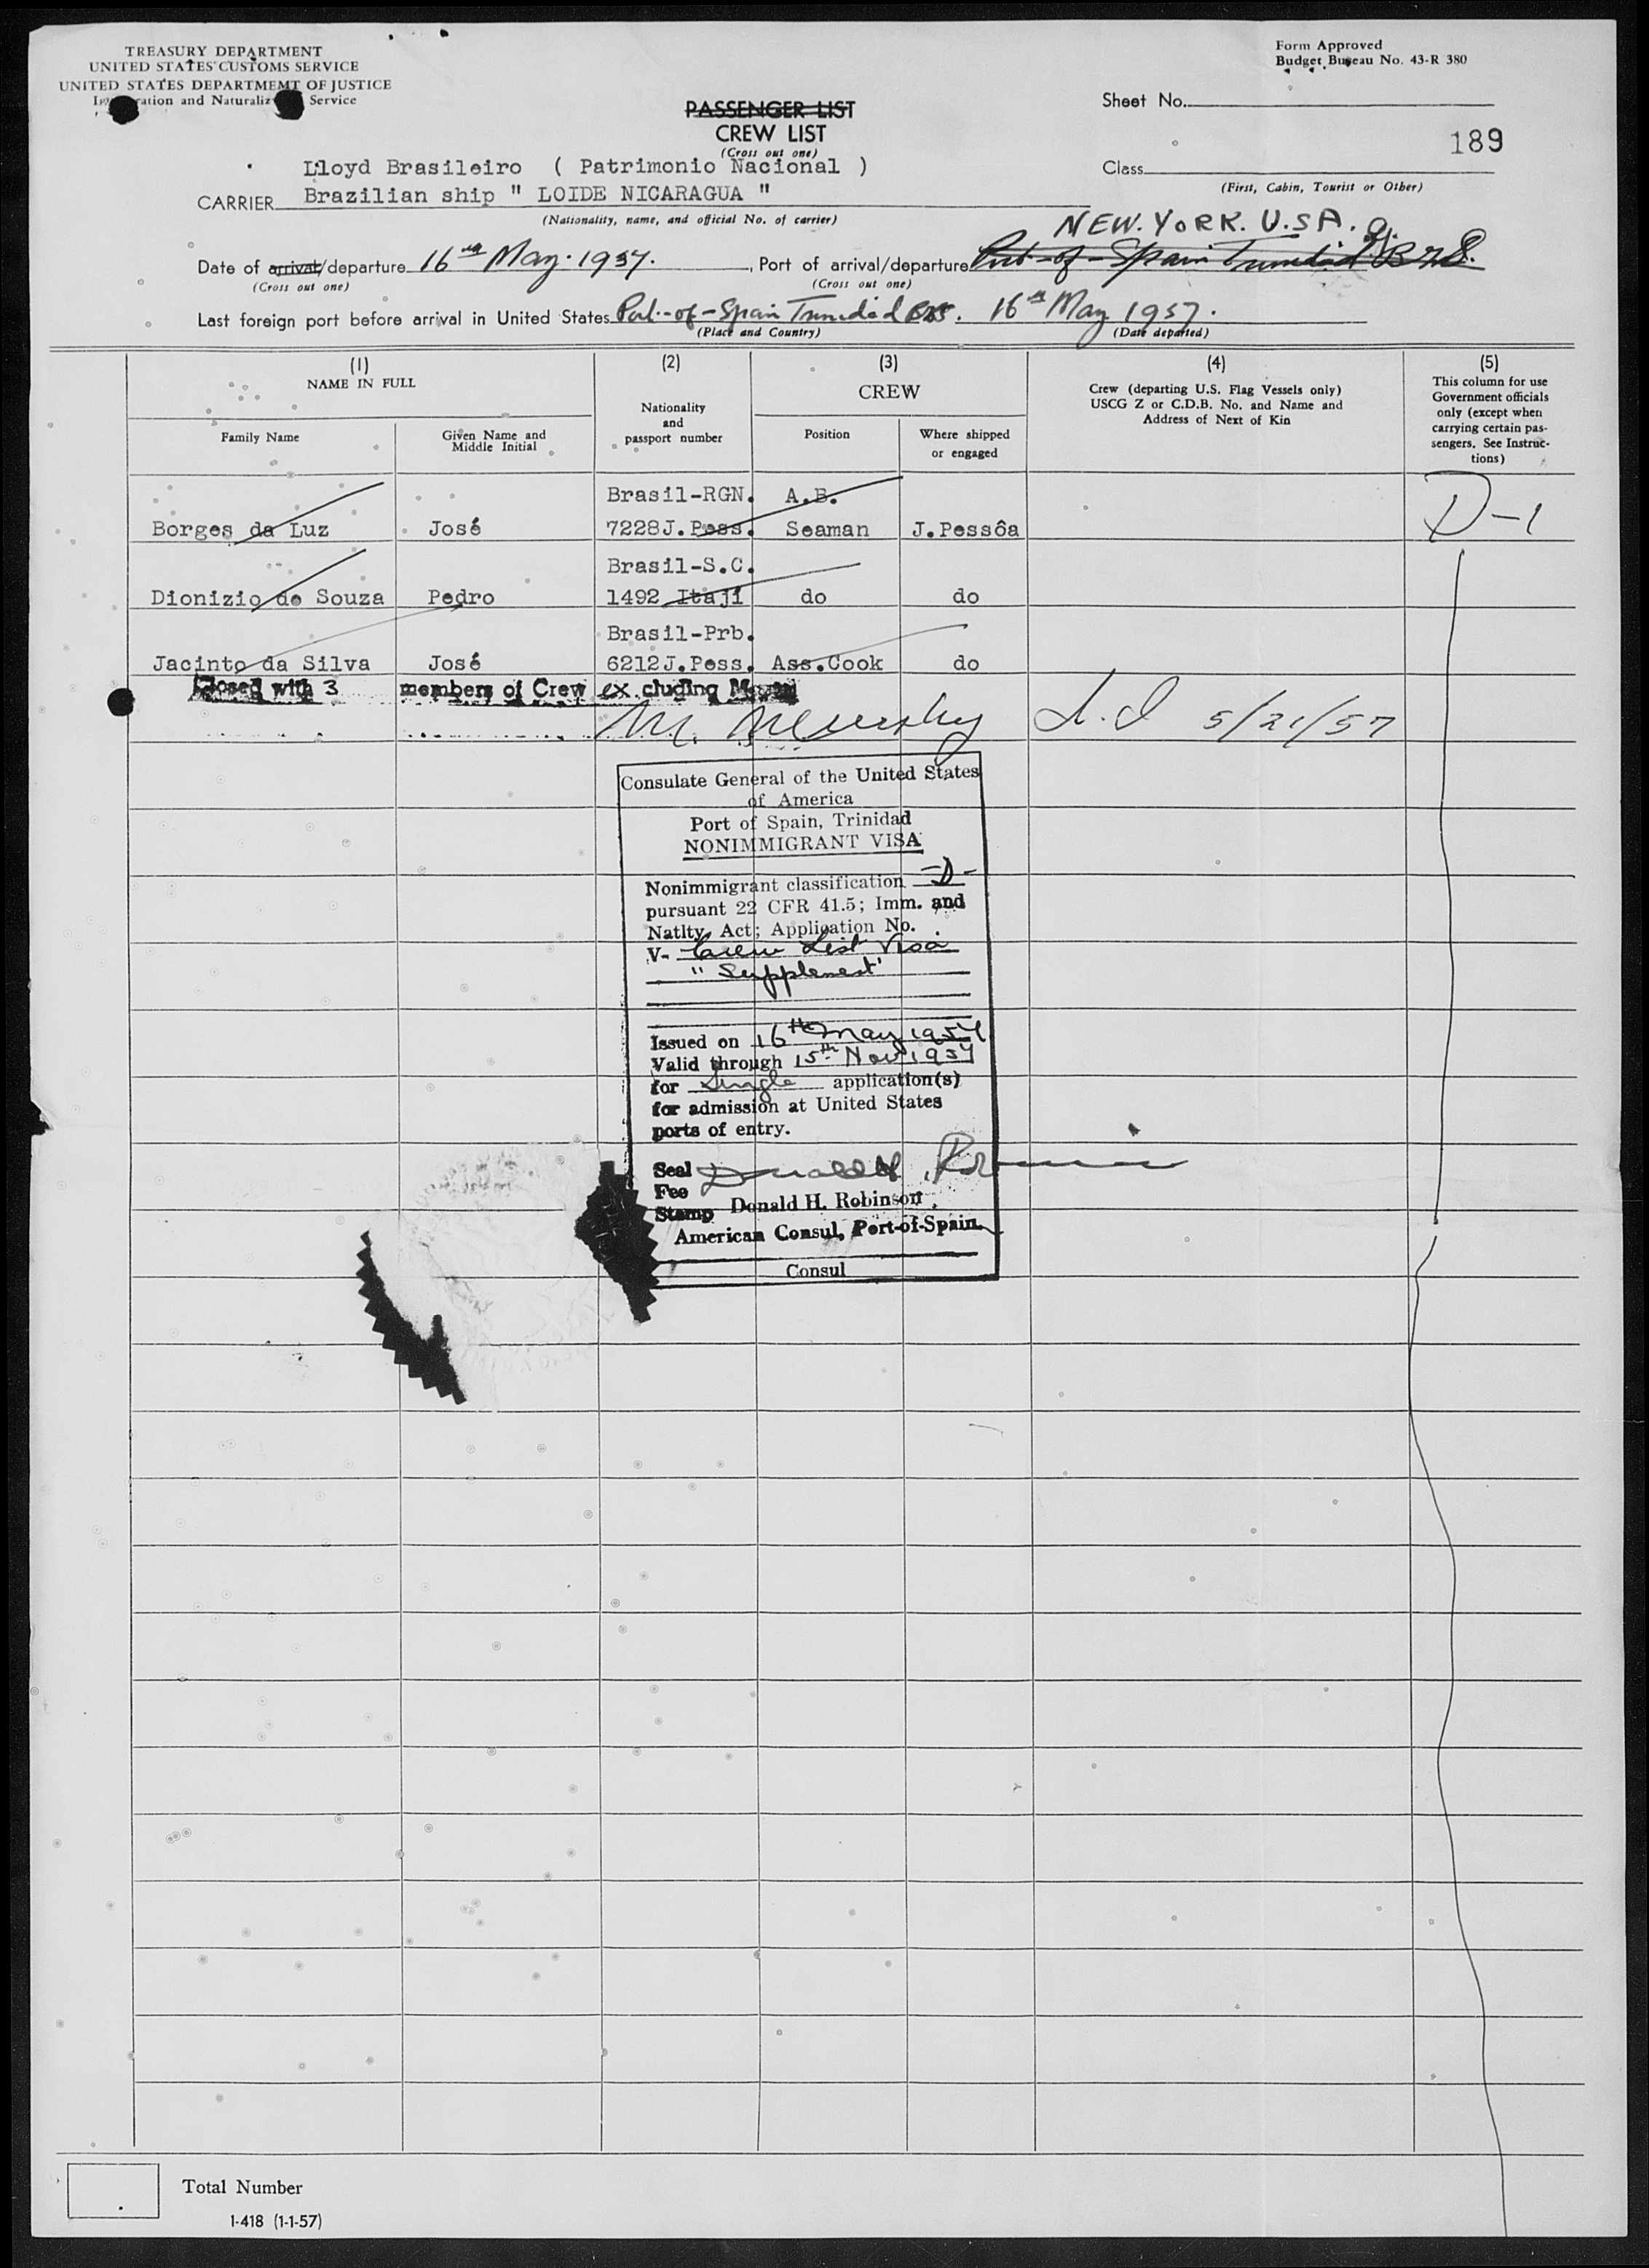 TREASURY DEPARTMENT
UNITED STATES CUSTOMS SERVICE
UNITED STATES DEPARTMEMT OF JUSTICE
ration and Naturaliz Service
Form Approved
Budget Bureau No. 43-R 380
PASSENGER LIST
CREW LIST
(Cross out one)
Sheet No.
189
Class
(First, Cabin, Tourist or Other)
Lloyd Brasileiro ( Patrimonio Nacional )
CARRIER Brazilian ship " LOIDE NICARAGUA "
(Nationality, name, and official No. of carrier)
NEW.YORK. U.S.A.
Date of arrival/departure 16th May. 1957. , Port of arrival/departure Port-of-Spain Trinidad
(Cross out one) (Cross out one)
Last foreign port before arrival in United States Port-of-Spain Trinidad 16th May 1957.
(Place and Country) (Date departed)
(1) (2) (3) (4) (5)
NAME IN FULL
Family Name
Given Name and Middle Initial
Nationality and passport number
CREW
Position
Where shipped or engaged
Crew (departing U.S. Flag Vessels only)
USCG Z or C.D.B. No. and Name and
Address of Next of Kin
This column for use
Government officials
only (except when
carrying certain pas-
sengers. See Instruc-
tions)
Brasil-RGN. A.B.
Borges da Luz José 7228J.Pess. Seaman J.Pessôa D-1
Brasil-S.C.
Dionizio de Souza Pedro 1492 Itají do do
Brasil-Prb.
Jacinto da Silva José 6212J.Pess. Ass.Cook do
Closed with 3 members of Crew ex cluding
5/21/57
Consulate General of the United States
of America
Port of Spain, Trinidad
NONIMMIGRANT VISA
Nonimmigrant classification -D-
pursuant 22 CFR 41.5; Imm. and
Natlty. Act; Application No.
V- Crew List Visa
"Supplement"
Issued on 16th May 1957
Valid through 15th Nov 1957
for Single application(s)
for admission at United States
ports of entry.
Seal
Fee
Stamp Donald H. Robinson
American Consul, Port-of-Spain
Consul
Total Number
1-418 (1-1-57)